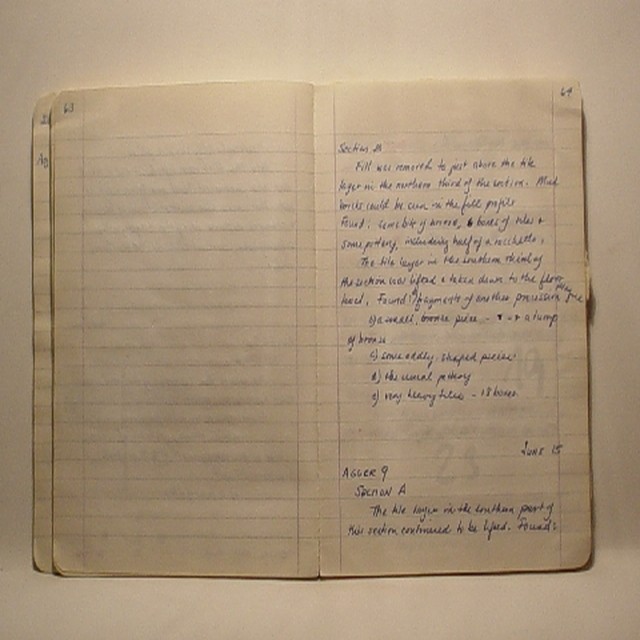 63
64
Section B
Fill was removed to just above the tile
layer in the northern third of the section. Mud
bricks could be seen in the fill profile
Found: some bits of bronze, 6 boxes of tiles &
some pottery, including half of a rocchetto.
The tile layer in the southern third of
the section was lifted & taken down to the floor
level. Found: fragments of another procession frieze
b) a small, bronze piece - & a lump
of bronze
c) some oddly shaped pieces
d) the usual pottery
e) very heavy tiles - 18 boxes
June 15
AGGER 9
SECTION A
The tile layer in the southern part of
this section continued to be lifted. Found: